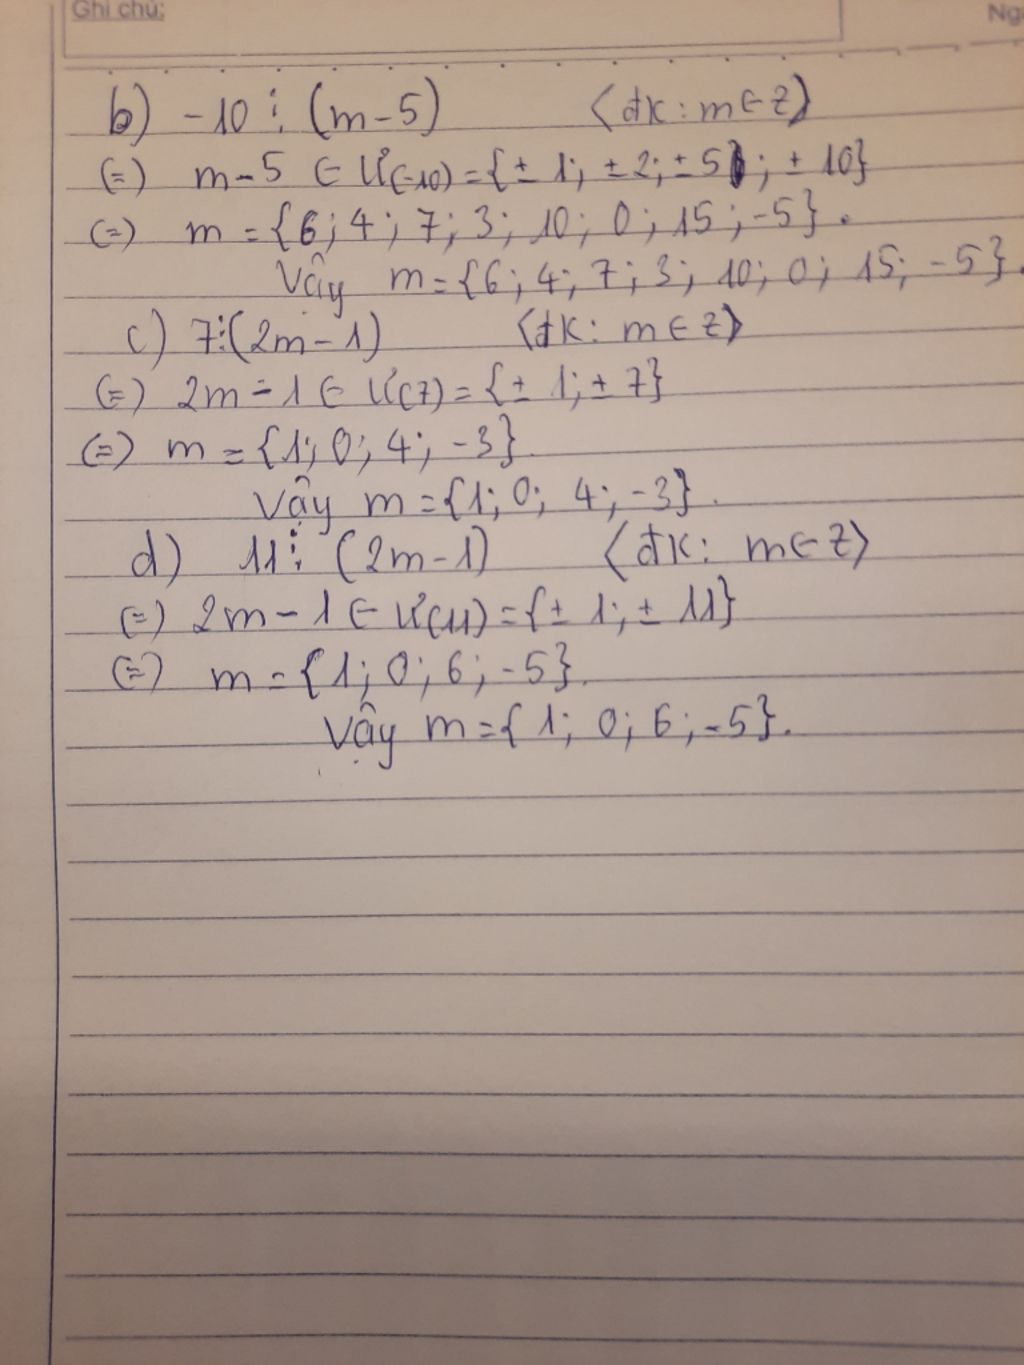 Ghi chú:
b) -10 ⋮ (m-5) (đk: m∈Z)
(=) m-5 ∈ Ư(-10) = {± 1; ± 2; ± 5; ± 10}
(=) m = {6; 4; 7; 3; 10; 0; 15; -5}.
Vậy m = {6; 4; 7; 3; 10; 0; 15; -5}.
c) 7⋮(2m-1) (đk: m∈Z)
(=) 2m-1 ∈ Ư(7) = {± 1; ± 7}
(=) m = {1; 0; 4; -3}
Vậy m = {1; 0; 4; -3}.
d) 11⋮ (2m-1) (đk: m∈Z)
(=) 2m-1 ∈ Ư(11) = {± 1; ± 11}
(=) m = {1; 0; 6; -5}.
Vậy m = {1; 0; 6; -5}.